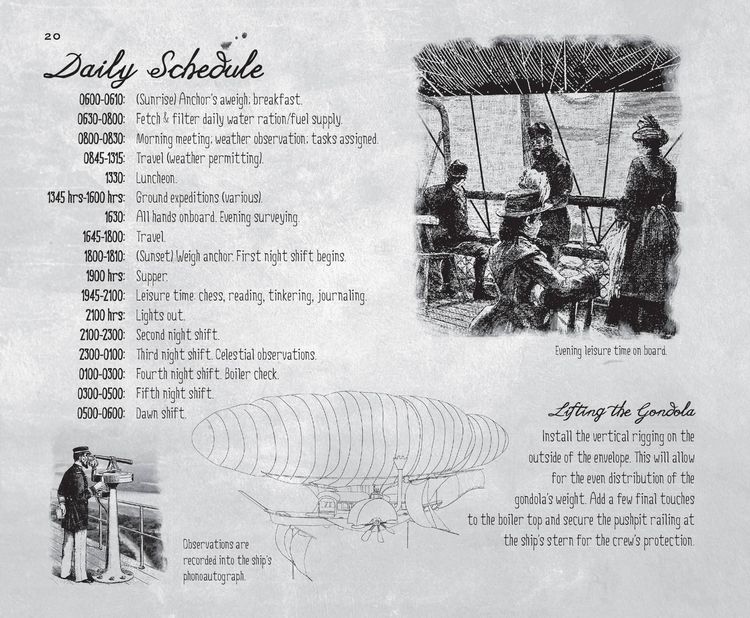 20
Daily Schedule
0600-0610: (Sunrise) Anchor's aweigh; breakfast.
0630-0800: Fetch & filter daily water ration/fuel supply.
0800-0830: Morning meeting; weather observation; tasks assigned.
0845-1315: Travel (weather permitting).
1330: Luncheon.
1345 hrs-1600 hrs: Ground expeditions (various).
1630: All hands onboard. Evening surveying.
1645-1800: Travel.
1800-1810: (Sunset) Weigh anchor. First night shift begins.
1900 hrs: Supper.
1945-2100: Leisure time: chess, reading, tinkering, journaling.
2100 hrs: Lights out.
2100-2300: Second night shift.
2300-0100: Third night shift. Celestial observations.
0100-0300: Fourth night shift. Boiler check.
0300-0500: Fifth night shift.
0500-0600: Dawn shift.
Evening leisure time on board.
Lifting the Gondola
Install the vertical rigging on the
outside of the envelope. This will allow
for the even distribution of the
gondola's weight. Add a few final touches
to the boiler top and secure the pushpit railing at
the ship's stern for the crew's protection.
Observations are
recorded into the ship's
phonoautograph.